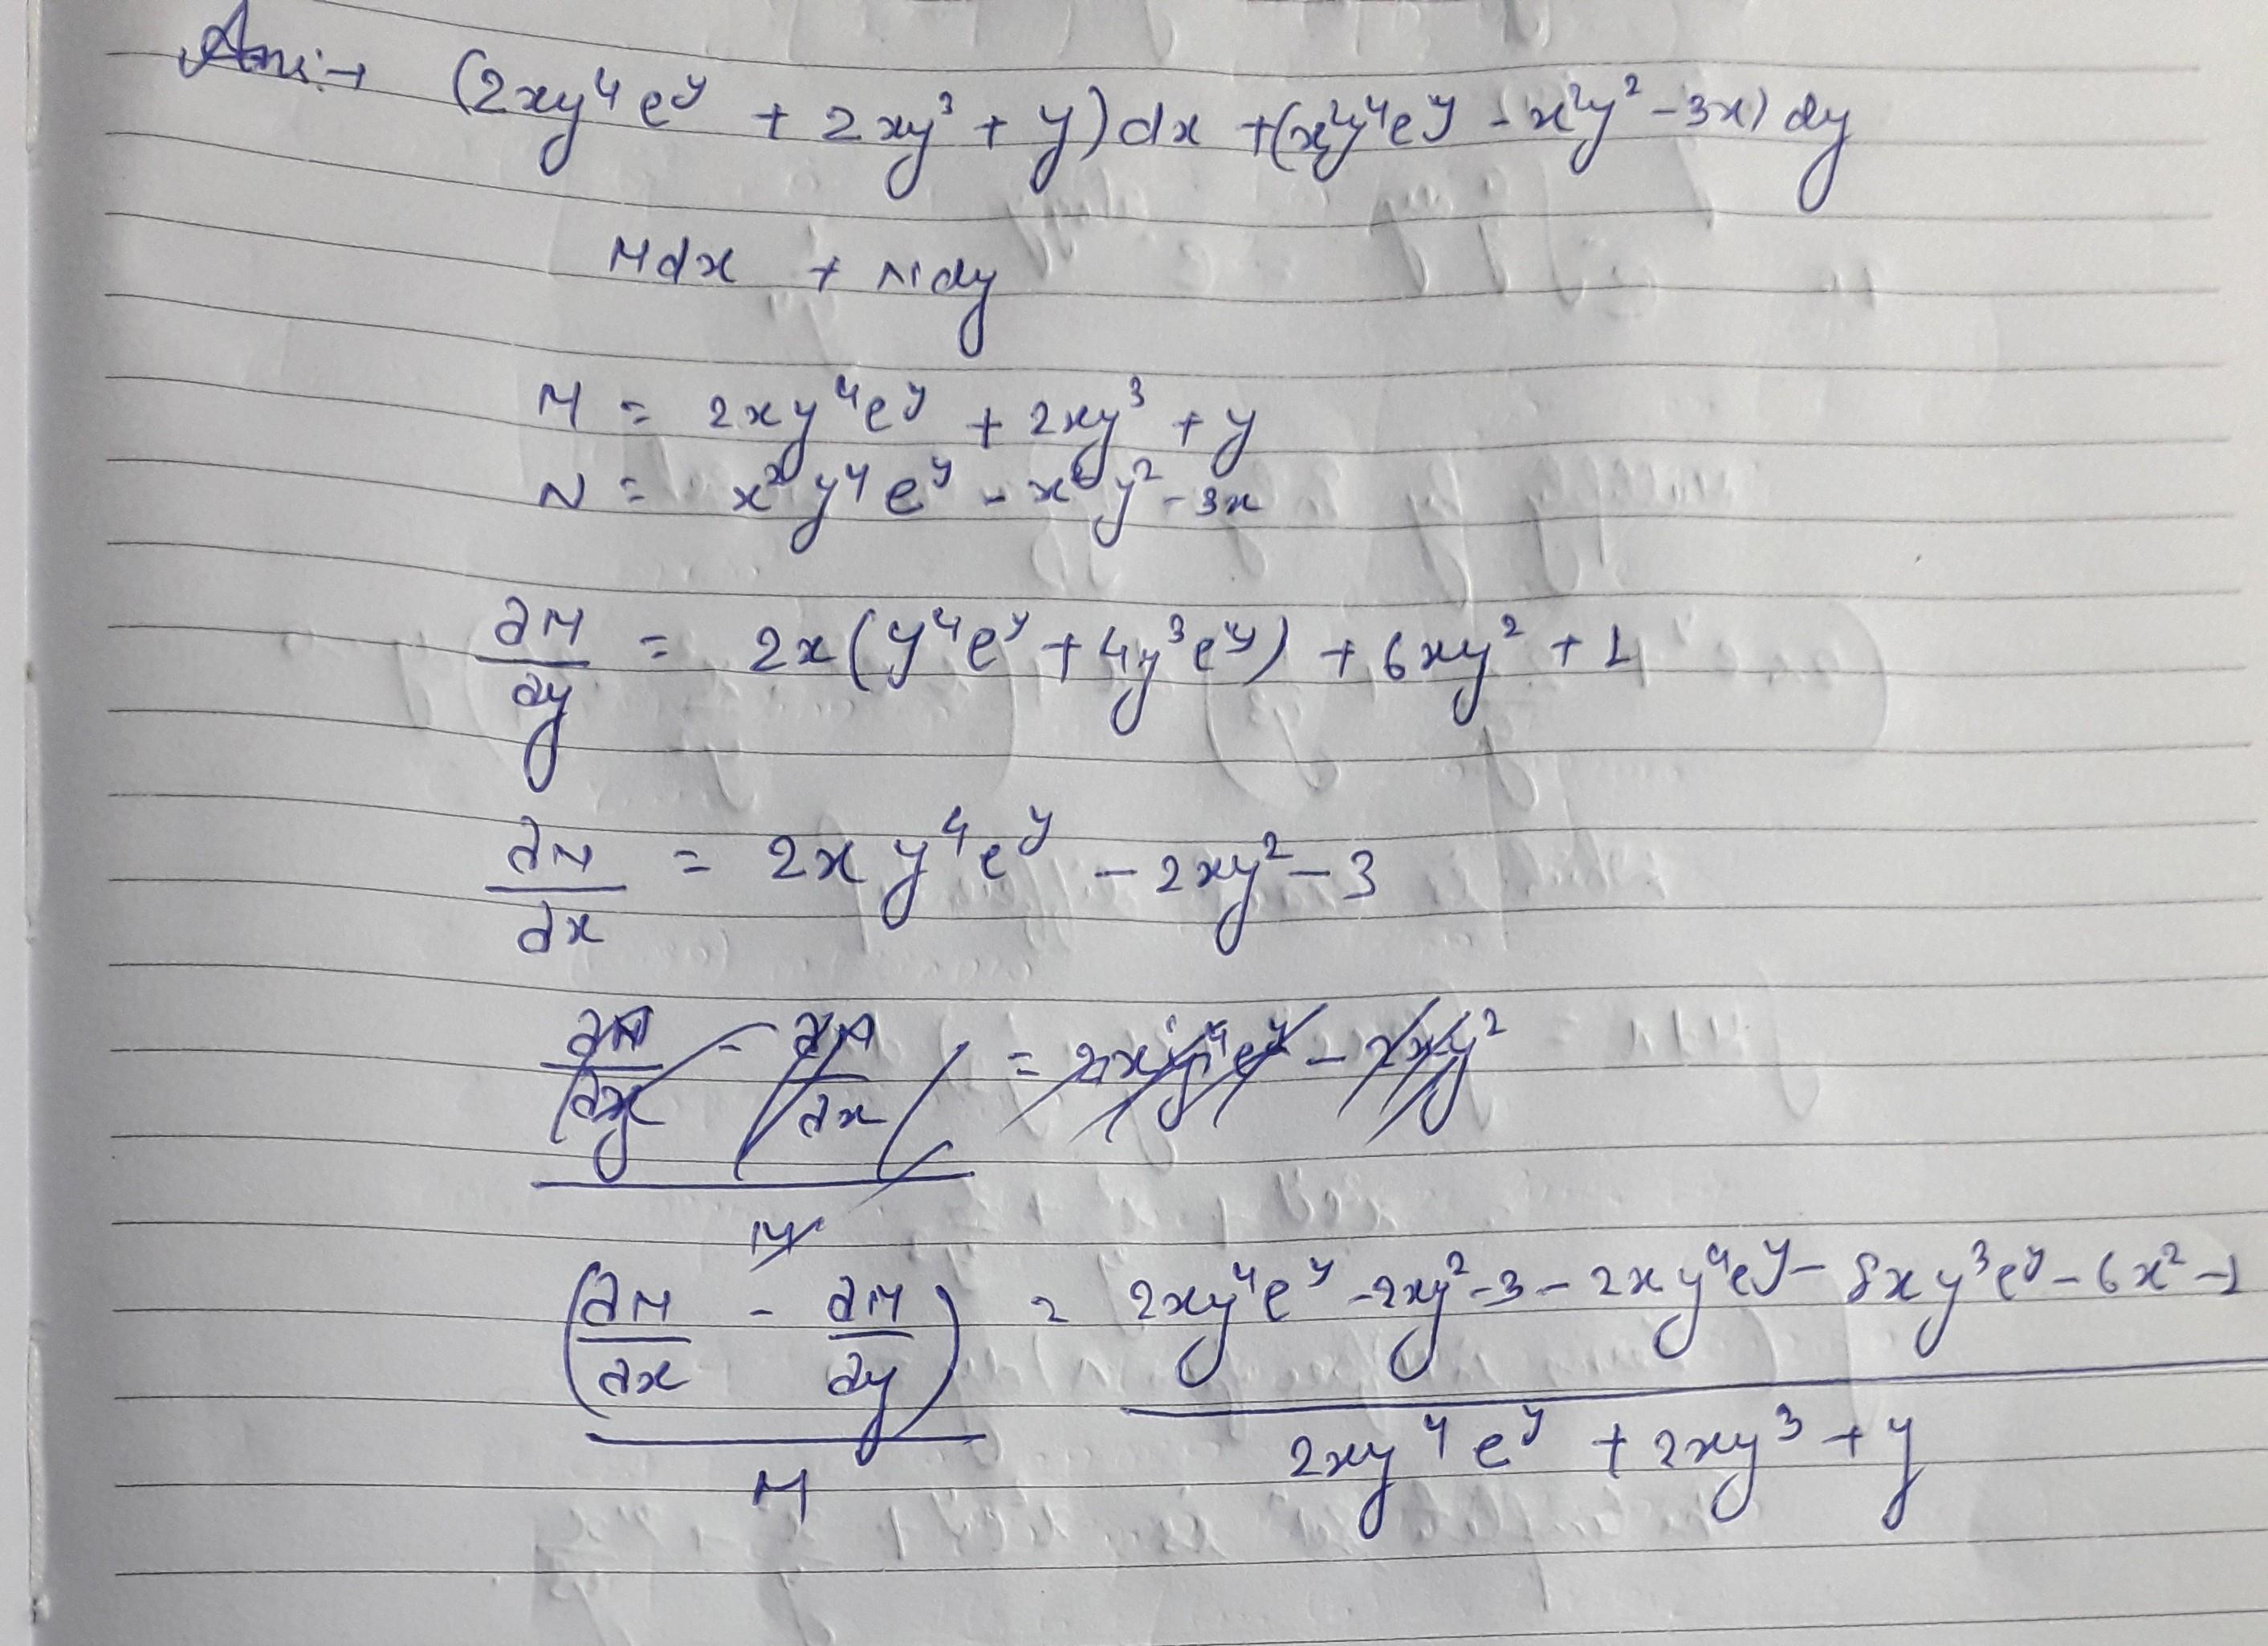 Ans:→ (2xy⁴e^y + 2xy³ + y)dx + (x²y⁴e^y - x²y² - 3x) dy
Mdx + Ndy
M = 2xy⁴e^y + 2xy³ + y
N = x²y⁴e^y - x²y² - 3x
∂M/∂y = 2x(y⁴e^y + 4y³e^y) + 6xy² + 1
∂N/∂x = 2xy⁴e^y - 2xy² - 3
(∂N/∂x - ∂M/∂y)/M = (2xy⁴e^y - 2xy² - 3 - 2xy⁴e^y - 8xy³e^y - 6x² - 1)/(2xy⁴e^y + 2xy³ + y)